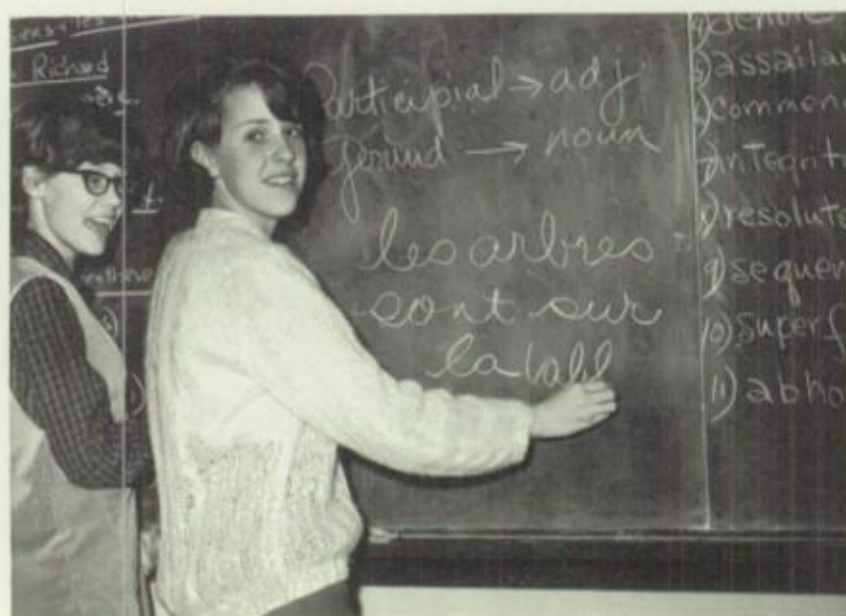 Richard
Participial → adj.
gerund → noun
les arbres
sont sur
la tabl
assailan
commen
7) integrit
resolute
9) sequen
10) superf
11) abho